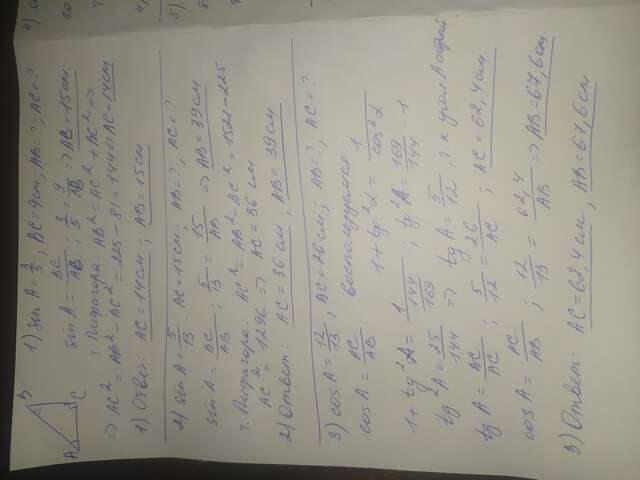 A
B
C
1) sin A = 3/5; BC = 9см; AB = ?; AC = ?
sin A = BC/AB; 3/5 = 9/AB => AB = 15см
т. Пифагора: AB² = AC² + BC² =>
=> AC² = AB² - BC² = 225 - 81 = 144 => AC = 14см
1) Ответ: AC = 14см; AB = 15см
2) sin A = 5/13; BC = 15см; AB = ?, AC = ?
sin A = BC/AB; 5/13 = 15/AB => AB = 39см
т. Пифагора: AC² = AB² BC² = 1521 - 225
AC² = 1296 => AC = 36 см
2) Ответ: AC = 36 см; AB = 39 см
3) cos A = 12/13, BC = 26см; AB = ?, AC = ?
cos A = AC/AB воспользуемся:
1 + tg²α = 1/cos²α
1 + tg²A = 1/(144/169); tg²A = 169/144 - 1
tg²A = 25/144 => tg A = 5/12, A острый
tg A = BC/AC; 5/12 = 26/AC; AC = 62,4см
cos A = AC/AB; 12/13 = 62,4/AB => AB = 67,6см
3) Ответ: AC = 62,4см, AB = 67,6см
4)
5)